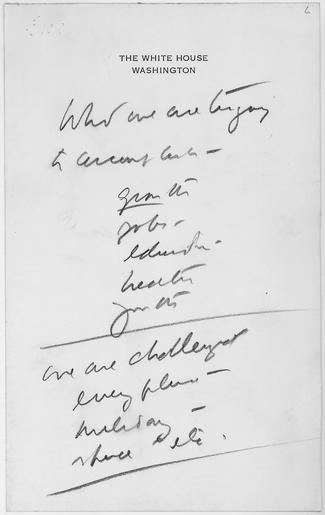 6
THE WHITE HOUSE
WASHINGTON
What we are trying
to accomplish —
growth
jobs —
education —
health
youth
we are challenged
every place —
military —
space etc.